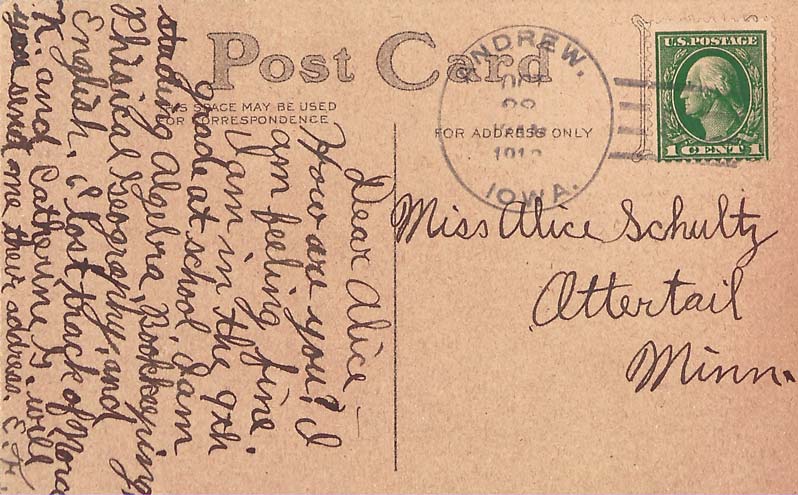 Post Card
THIS SPACE MAY BE USED
FOR CORRESPONDENCE
FOR ADDRESS ONLY
ANDREW,
IOWA.
U.S. POSTAGE
1 CENT 1
Miss Alice Schultz
Ottertail
Minn.
Dear Alice—
How are you? I
am feeling fine.
I am in the 9th
grade at school. I am
studing Algebra, Bookkeeping,
Phisical Geography, and
English. I lost thack of Nora
K. and Catherine G. will
you send me their address. E.H.